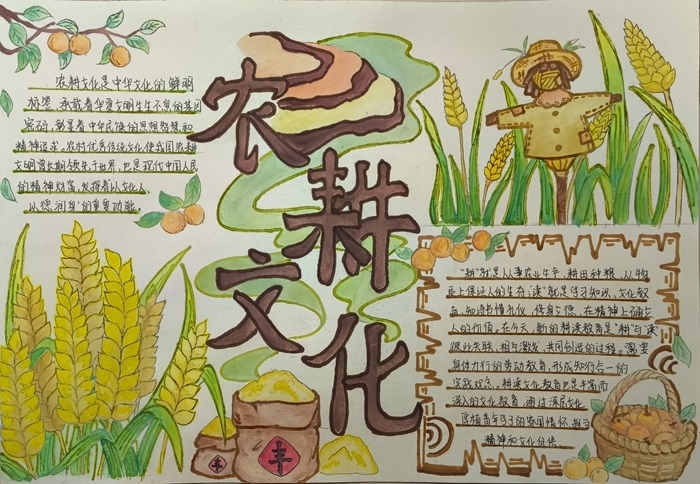 农耕文化
农耕文化是中华文化的鲜明
标签，承载着华夏文明生生不息的基因
密码，彰显着中华民族的思想智慧和
精神追求。农村优秀传统文化使我国农耕
文明曾长期领先于世界，也是现代中国人民
的精神财富，发挥着以文化人
以德润身的重要功能。
"耕"就是从事农业生产，耕田种粮，从物
上保证人的生存；读"就是学习知识、文化教
知诗书懂礼仪，修身立德，在精神上确立
人的价值，在今天，新的耕读教育是"耕"与"读
彼此关联、相与激发、共同创进的过程。需要
身体力行的劳动教育，形成知行合一的
实践观念，耕读文化教育也是丰富而
深入的文化教育，通过深层文化
厚植青年学子的家国情怀，担当
精神和文化自信
丰
丰